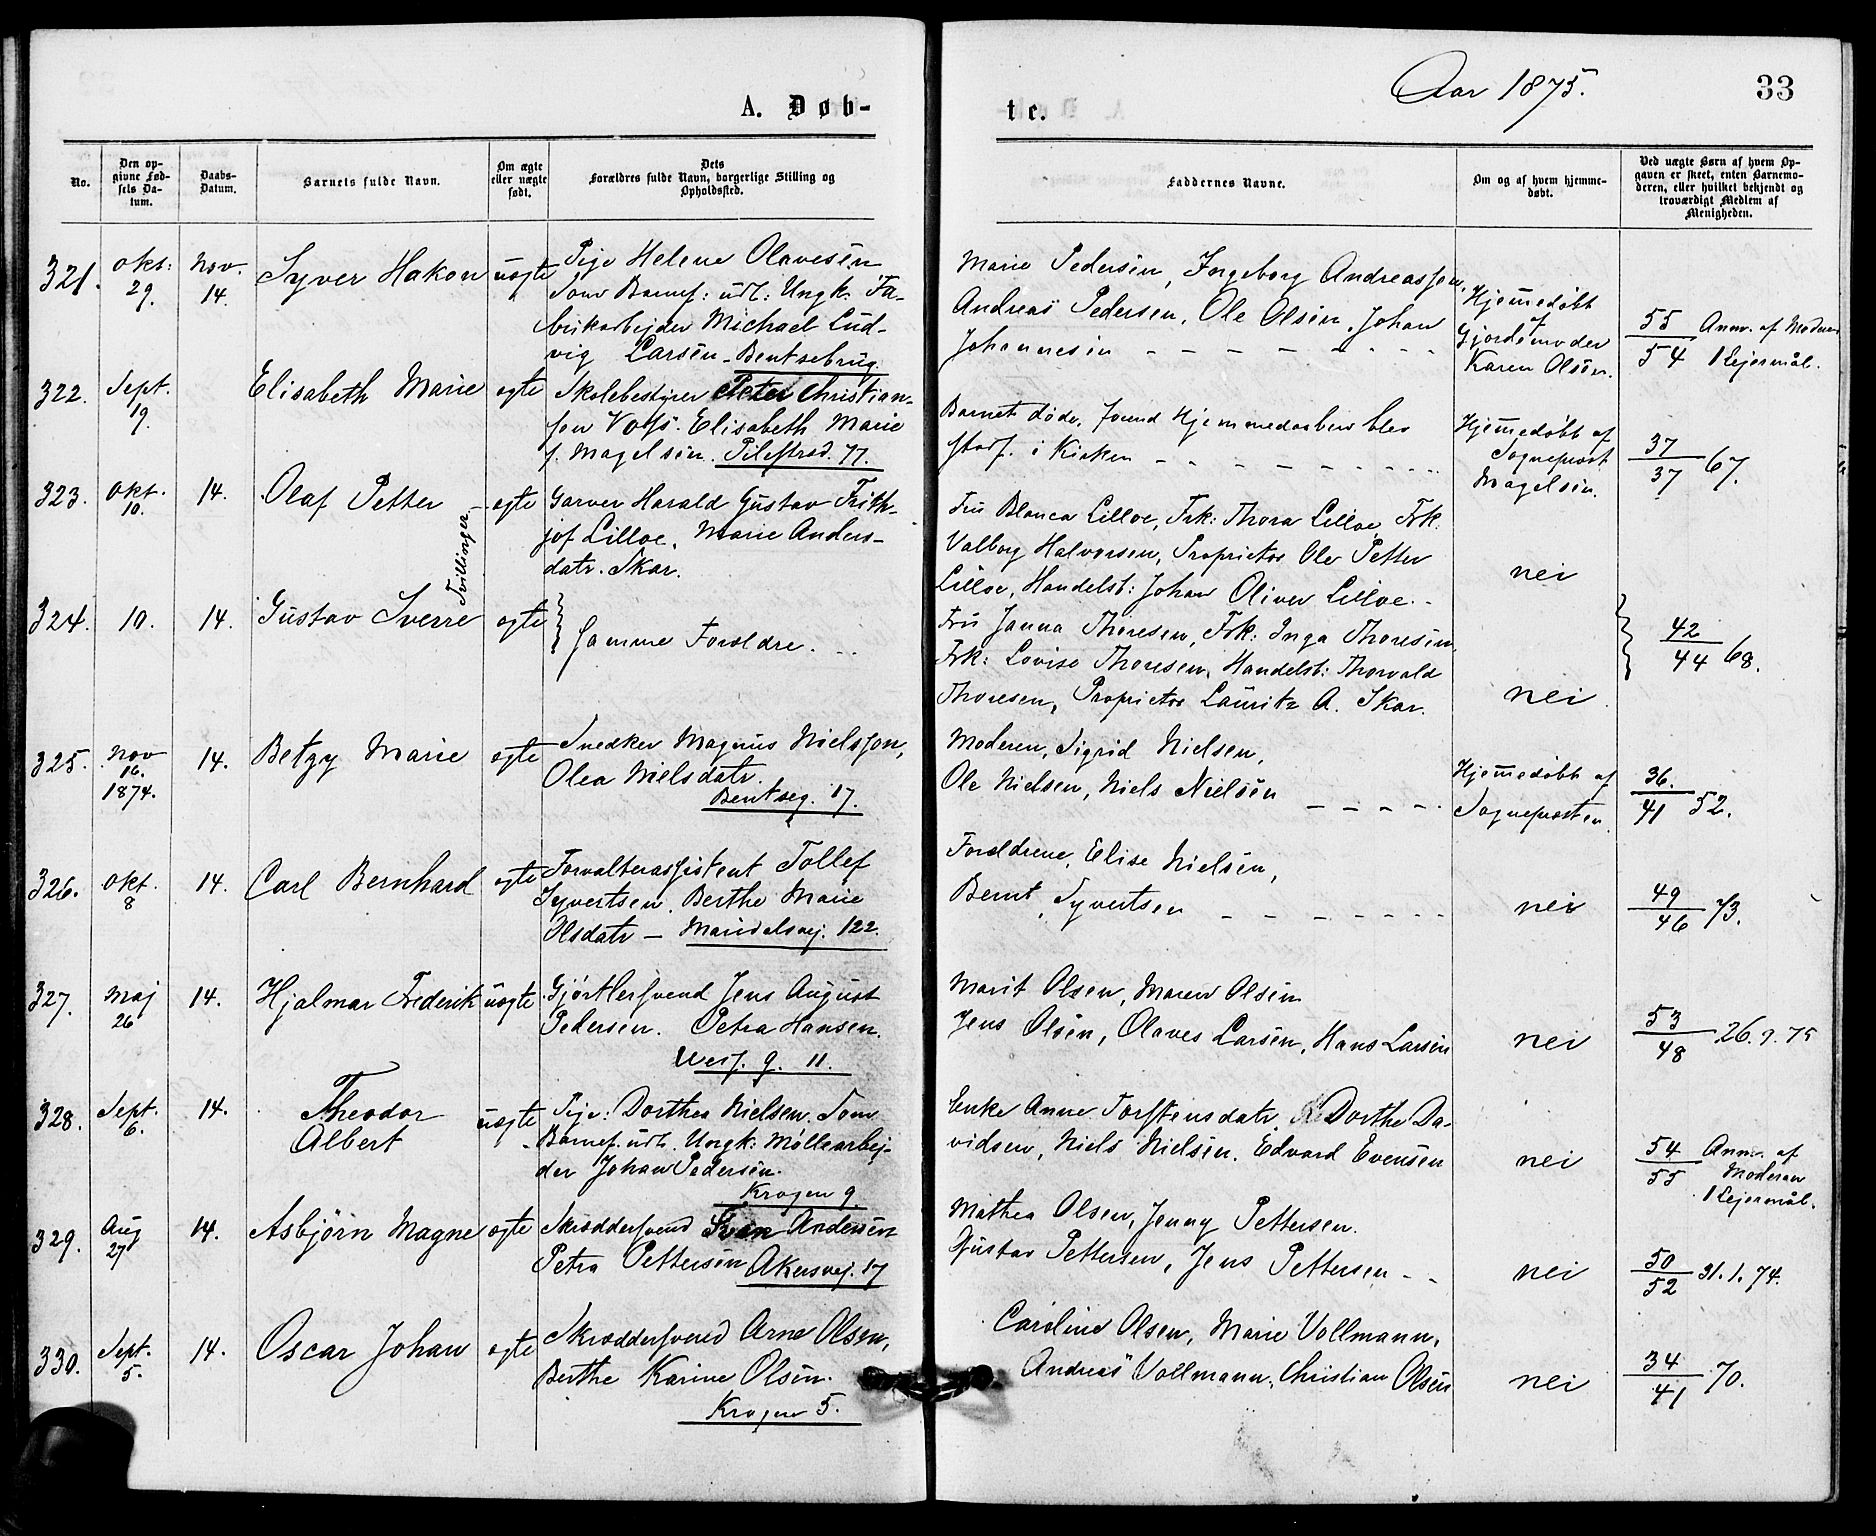 Aar 1875.
33
A. Døb-
te.
No.
Den op-
givne Fød-
sels Da-
tum.
Daabs-
Datum.
Barnets fulde Navn.
Om ægte
eller uægte
født.
Dets
Forældres fulde Navn, borgerlige Stilling og
Opholdssted.
Faddernes Navne.
Om og af hvem hjemme-
døbt.
Ved uægte Børn af hvem Op-
gaven er skeet, enten Barnemo-
deren, eller hvilket bekjendt og
troværdigt Medlem af
Menigheden.
321. Okt: 29. Nov. 14. Syver Hakon uægte
Pige Helene Olavesen
Som Barnef: udl: Ungk. Fa-
brikarbejder Michael Lud-
vig Larsen - Bentsebrug.
Marie Pedersen, Ingeborg Andreassen,
Andreas Pedersen, Ole Olsen, Johan
Johannesen
Hjemmedøbt
af
Gjordemoder
Karen Olsen.
55/54 Anm. af Moderen
1 Lejermål.
322. Sept. 19. Elisabeth Marie ægte
Skolebestyrer Peter Christian-
sen Voss. Elisabeth Marie
f. Magelsen. Pilestræd. 77.
Barnet døde, forend Hjemmedaaben blev
stadf. i Kirken
Hjemmedøbt af
Sogneprest
Magelsen.
37/37 67.
323. Okt. 10. 14. Olaf Petter ægte
Tvillinger
Garver Harald Gustav Frith-
jof Lilloe, Marie Anders-
datr. Skar.
Fru Blanca Lilloe, Frk: Thora Lilloe, Frk.
Valborg Halvorsen, Proprietær Ole Petter
Lilloe, Handelsb: Johan Oliver Lilloe.
nei
324. 10. 14. Gustav Sverre ægte
Samme Forældre.
Fru Janna Thoresen, Frk: Inga Thoresen,
Frk: Lovise Thoresen, Handelsb: Thorvald
Thoresen, Proprietær Lauritz A. Skar.
nei
42/44 68.
325. Nov 16. 1874. 14. Betzy Marie ægte
Snedker Magnus Nielssen,
Olea Nielsdatr.
Bentseg. 17.
Moderen, Sigrid Nielsen,
Ole Nielsen, Niels Nielsen
Hjemmedøbt af
Sognepresten
36./41 52.
326. Okt. 8 14. Carl Bernhard ægte
Forvalterassistent Tollef
Syvertsen, Berthe Marie
Olsdatr - Maridalsvej. 122.
Forældrene, Elise Nielsen,
Bernt Syvertsen
nei
49/46 73.
327. Maj 26 14. Hjalmar Frederik uægte
Gjørtlersvend Jens August
Pedersen. Petra Hansen.
Wesf. g. 11.
Marit Olsen, Maren Olsen
Jens Olsen, Olaves Larsen, Hans Larsen
nei
53/48 26.9.75
328. Sept. 6. 14. Theodor
Albert uægte
Pige: Dorthea Nielsen. Som
Barnef. udl. Ungk: Møllearbej-
der Johan Pedersen.
Krogen 9
Enke Anne Torstensdatr, Dorthe Da-
vidsen, Niels Nielsen. Edvard Evensen
nei
54/55 Anm. af
Moderen
1 Lejermål.
329. Aug 27 14. Asbjörn Magne ægte
Skræddersvend Sven Andersen
Petra Pettersen Akersvej. 17
Mathea Olsen, Jenny Pettersen.
Gustav Pettersen, Jens Pettersen
nei
50/52 31.1.74.
330. Sept. 5. 14. Oscar Johan ægte
Skræddersvend Arne Olsen,
Berthe Karine Olsen.
Krogen 5.
Caroline Olsen, Marie Vollmann,
Andreas Vollmann, Christian Olsen
nei
34/41 70.